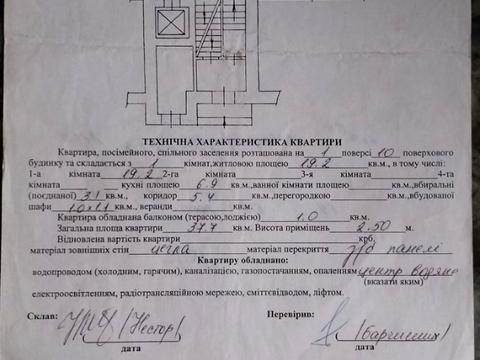 ТЕХНІЧНА ХАРАКТЕРИСТИКА КВАРТИРИ
Квартира, посімейного, спільного заселення розташована на 1 поверсі 10 поверхового
будинку та складається з 1 кімнат,житловою площею 19.2 кв.м., в тому числі:
1-а кімната 19.2 2-га кімната 3-я кімната 4-та
кімната кухні площею 6.9 кв.м.,ванної кімнати площею кв.м.,вбиральні
(поєднаної) 3.1 кв.м., коридор 5.4 кв.м.,перегородкою кв.м.,вбудованої
шафи кв.м., веранди кв.м.
Квартира обладнана балконом (терасою,лоджією) 1.0 кв.м.
Загальна площа квартири 37.7 кв.м. Висота приміщень 2.50 м.
Відновлена вартість квартири крб.
матеріал зовнішніх стін цегла матеріал перекриття з/б панелі
Квартиру обладнано:
водопроводом (холодним, гарячим), каналізацією, газопостачанням, опаленням центр. водяне
(вказати яким)
електроосвітленням, радіотрансляційною мережею, сміттєвідводом, ліфтом.
Склав: (Нестор) Перевірив:
дата дата